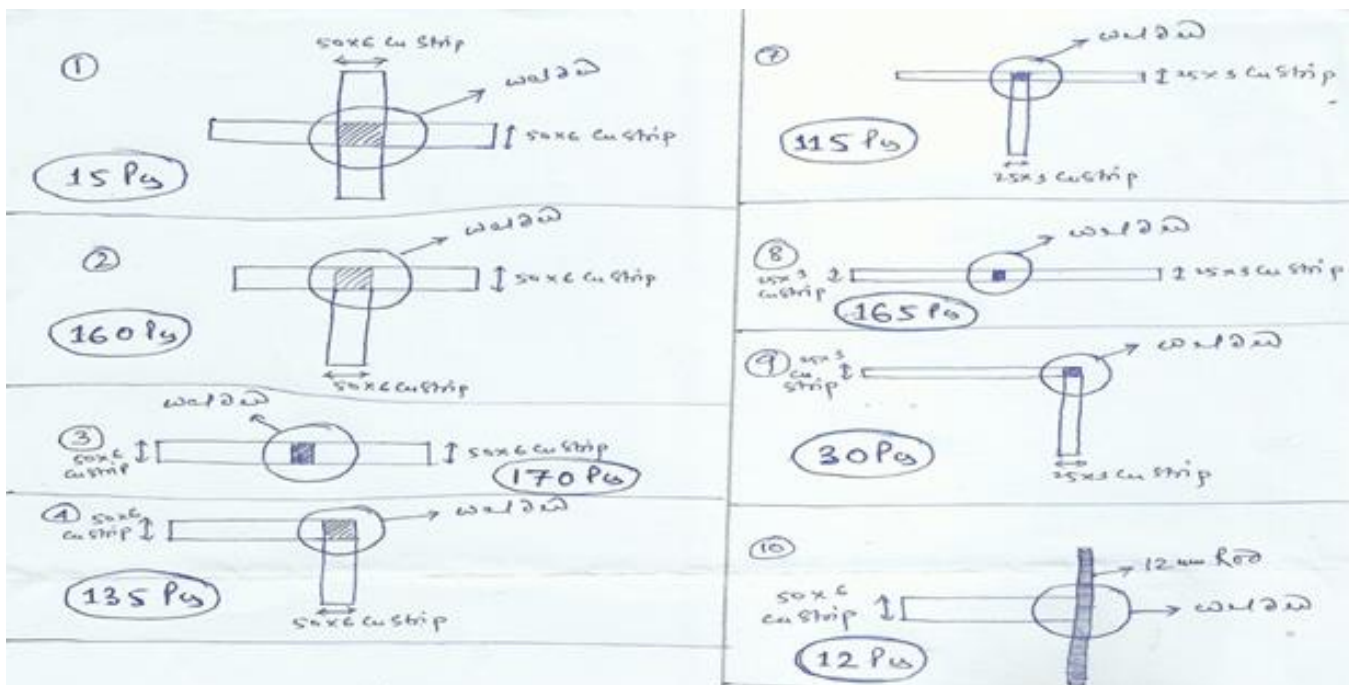 ①
50x6 Cu Strip
welded
50x6 Cu Strip
15 Pcs
②
welded
50x6 Cu Strip
160 Pcs
50x6 Cu Strip
③
welded
50x6
Cu Strip
50x6 Cu Strip
170 Pcs
④
50x6
Cu Strip
welded
135 Pcs
50x6 Cu Strip
⑦
welded
25x3 Cu Strip
115 Pcs
25x3 Cu Strip
⑧
welded
25x3
Cu Strip
25x3 Cu Strip
165 Pcs
⑨
25x3
Cu
Strip
welded
30 Pcs
25x3 Cu Strip
⑩
12mm Rod
50x6
Cu Strip
welded
12 Pcs